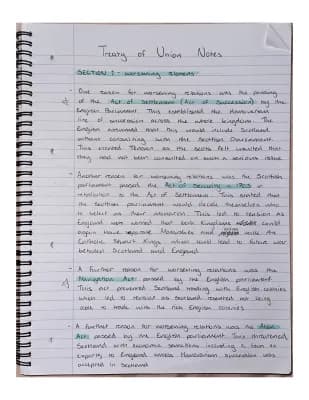 Treaty of Union Notes
SECTION 1 - worsening relations
- One reason for worsening relations was the passing
of the Act of Settlement (Act of Succession) by the
English Parliament. This established the Hanoverian
line of succession across the whole kingdom. The
English assumed that this would include Scotland
without consulting with the Scottish Parliament.
This created tension as the Scots felt insulted that
they had not been consulted on such a serious issue.
- Another reason for worsening relations was the Scottish
parliament passed the Act of Security in 1703 in
retaliation to the Act of Settlement. This stated that
the Scottish parliament would decide themselves who
to select as their monarch. This led to tension as
England were worried that both Kingdoms would could
again have separate Monarchies and
Catholic Stuart Kings which could lead to future war
between Scotland and England.
- A further reason for worsening relations was the
Navigation Act passed by the English parliament.
This act prevented Scotland trading with English colonies
which led to tension as Scotland resented not being
able to trade with the rich English colonies.
- A further reason for worsening relations was the Alien
Act passed by the English parliament. This threatened
Scotland with economic sanctions including a ban on
exports to England unless Hanoverian succession was
accepted in Scotland